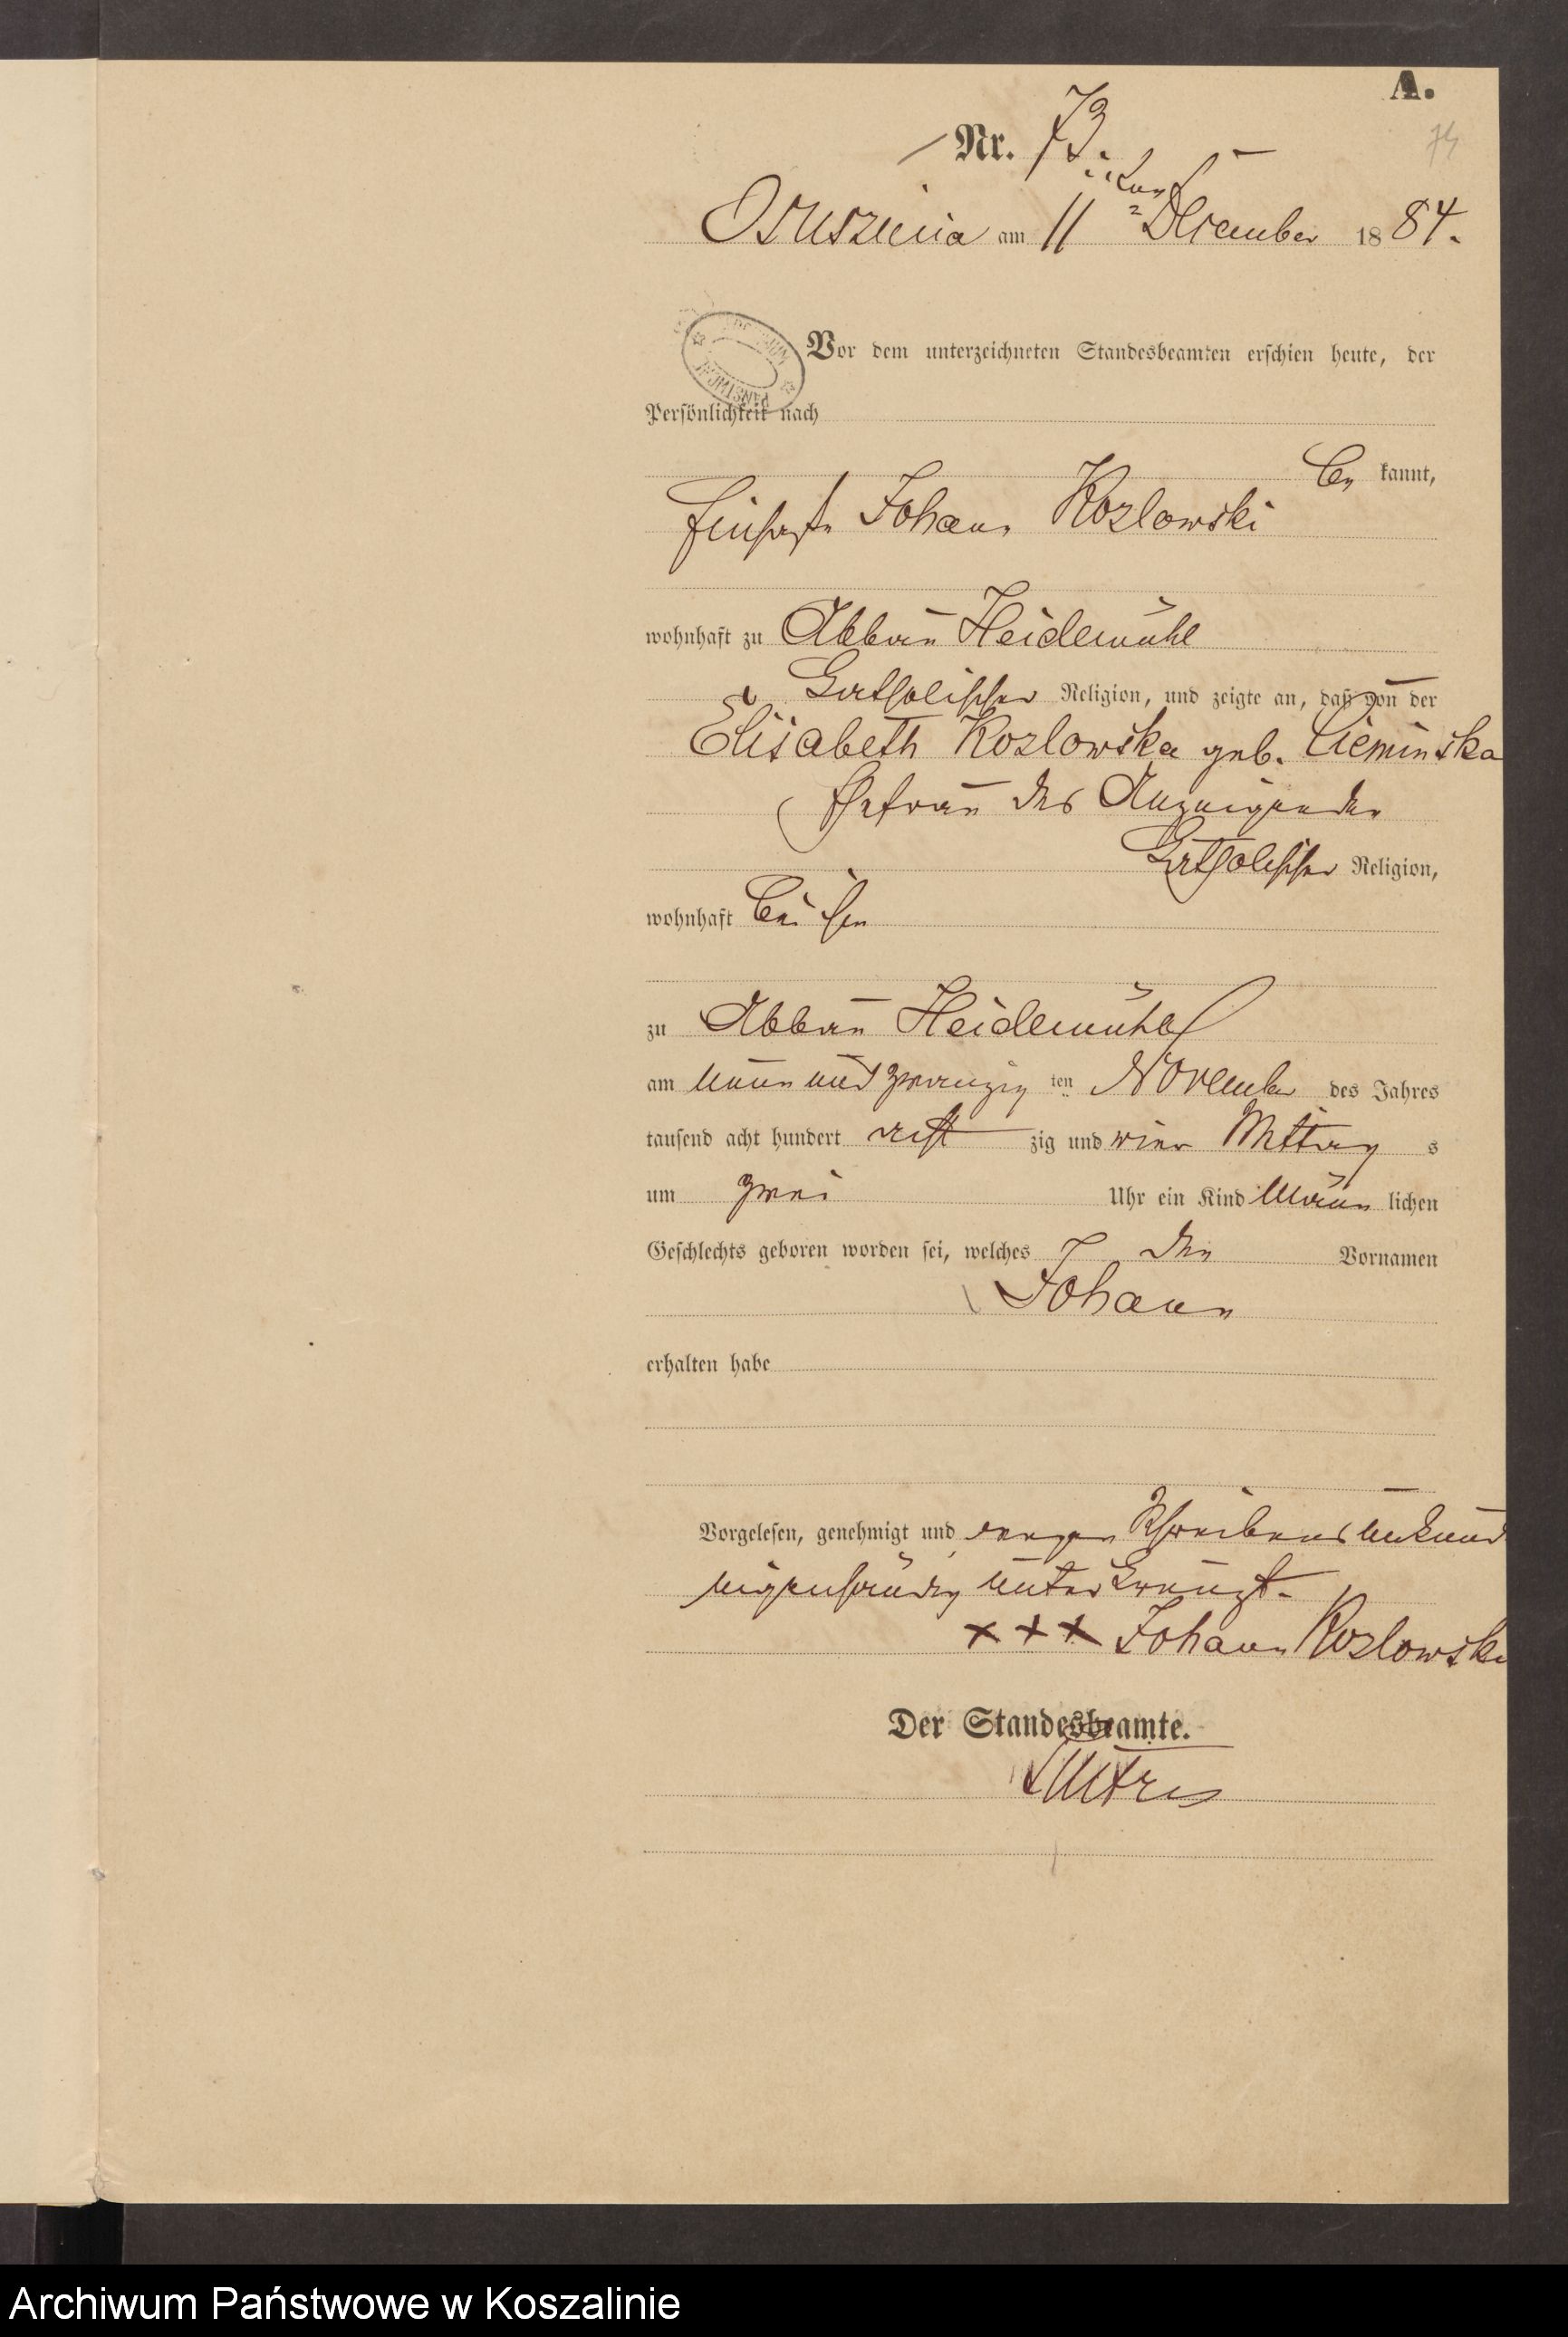 A.
Nr. 73.
73
Ossuszenica am 11 ten December 1884.
Vor dem unterzeichneten Standesbeamten erschien heute, der
Persönlichkeit nach
be kannt,
Johann Kozlowski
wohnhaft zu Abbau Heidemühl
katholischer Religion, und zeigte an, daß von der
Elisabeth Kozlowska geb. Cieminska
Ehefrau des Anzeigenden
katholischer Religion,
wohnhaft bei ihm
zu Abbau Heidemühl
am neun und zwanzig ten November des Jahres
tausend acht hundert acht zig und vier Mittag s
um zwei Uhr ein Kind männ lichen
Geschlechts geboren worden sei, welches den Vornamen
Johann
erhalten habe
Vorgelesen, genehmigt und wegen Schreibens unkund
eigenhändig unterkreuzt.
+++ Johann Kozlowski
Der Standesbeamte.
Archiwum Państwowe w Koszalinie